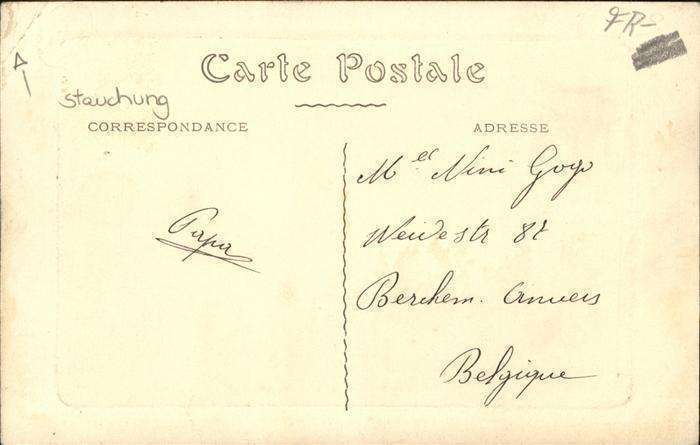 FR-
Carte Postale
Stauchung
CORRESPONDANCE
ADRESSE
Mel Nini Gogo
Weidestr 82
Berchem. Anvers
Belgique
Papa